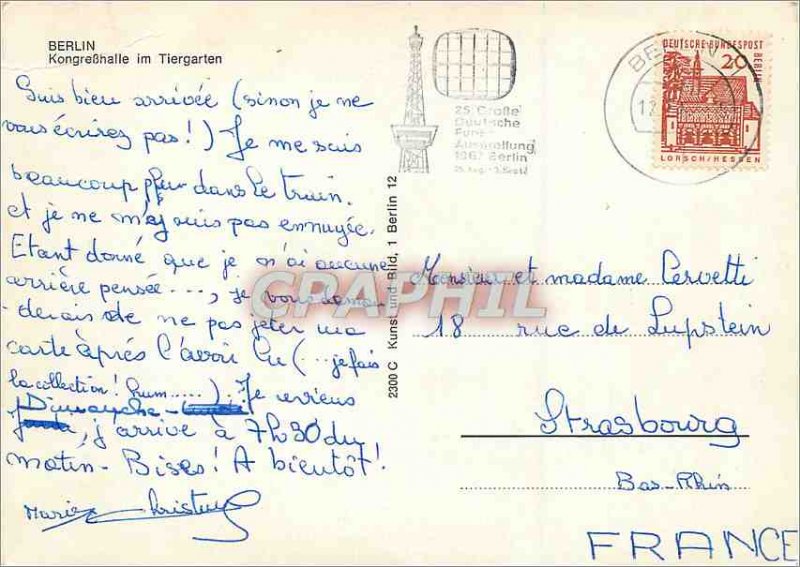 BERLIN
Kongreßhalle im Tiergarten
Suis bien arrivée (sinon je ne
vous écrirez pas!) Je me suis
beaucoup plu dans le train.
et je ne m'y suis pas ennuyée.
Etant donné que je n'ai aucune
arrière pensée ..., je vous deman
derais de ne pas jeter ma
carte àprès l'avoir lu (... je fais
la collection! hum.....). Je reviens
Dimanche
j'arrive à 7h30 du
matin. Bises! A bientôt!
Marie Christine
2300 C Kunst und Bild, 1 Berlin 12
25. Große
Deutsche
Funk-
Ausstellung
1967 Berlin
25. Aug.-3. Sept.
BERLIN
12
DEUTSCHE BUNDESPOST
BERLIN
20
LORSCH/HESSEN
Monsieur et madame Cervetti
18 rue de Lupstein
Strasbourg
Bas-Rhin
FRANCE
CPAPHIL